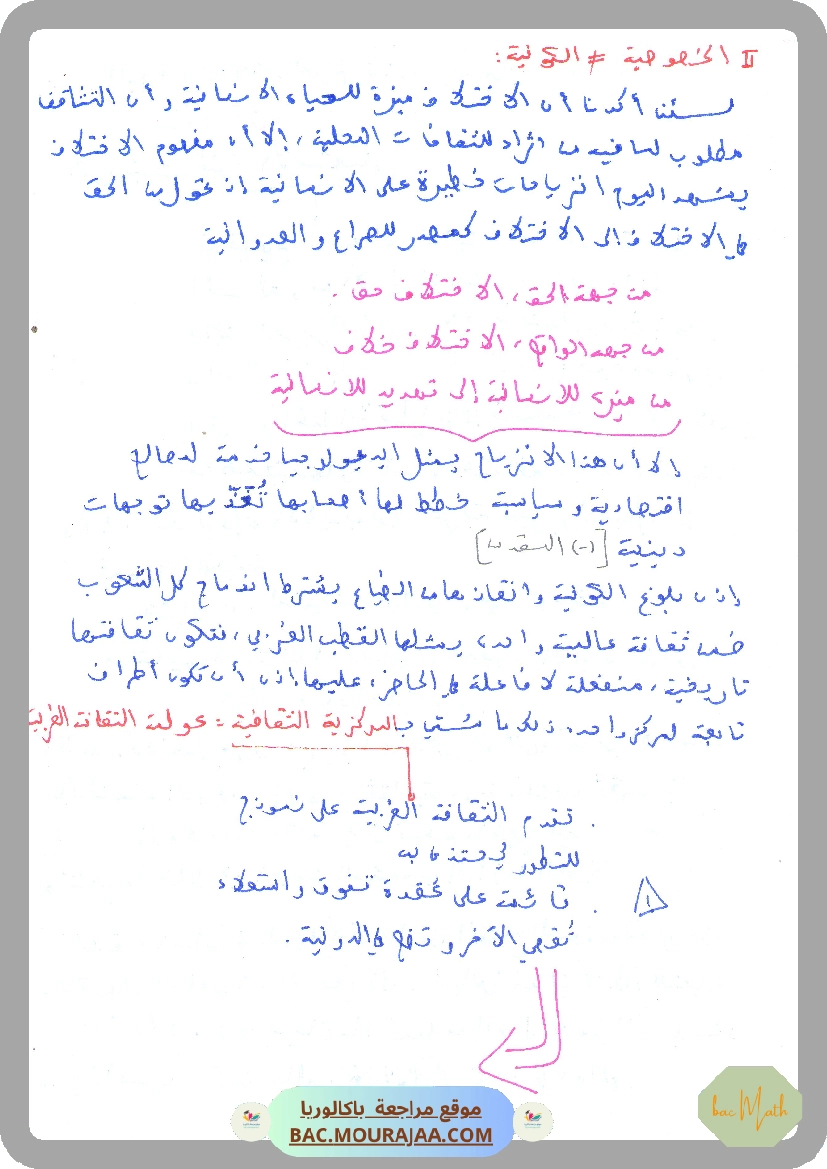 II الخصوصية ≠ الكونية:
لسئن أكدنا أن الاختلاف ميزة للحياة الانسانية وأن التثاقف
مطلوب لما فيه من اثراء للثقافات المحلية، إلا أن مفهوم الاختلاف
يشهد اليوم انزياحات خطيرة على الانسانية إذ تحول من الحق
في الاختلاف إلى الاختلاف كمصدر للصراع والعدوانية
من جهة الحق، الاختلاف حق.
من جهة الواقع، الاختلاف خلاف
من ميزة للانسانية إلى تهديد للانسانية
إلا أن هذا الانزياح يمثل ايديولوجيا خدمة لمصالح
اقتصادية وسياسية خطط لها أصحابها تُغذّيها توجهات
دينية [(-) المقدس]
إذن بلوغ الكونية وانقاذها من الضياع يشترط اندماج كل الشعوب
ضمن ثقافة عالمية واحدة يمثلها القطب الغربي، فتكون ثقافتها
تاريخية، منفعلة لا فاعلة في الحاضر، عليها إذن أن تكون أطراف
تابعة لمركز واحد. ذلك ما سُمّي بالمركزية الثقافية = عولمة الثقافة الغربية
. تقدم الثقافة الغربية على نموذج
للتطور يُحتذى به
. قائمة على عُقدة تفوق واستعلاء
تُقصي الآخر وتضع في الدونية.
١
موقع مراجعة باكالوريا
BAC.MOURAJAA.COM
bac Math